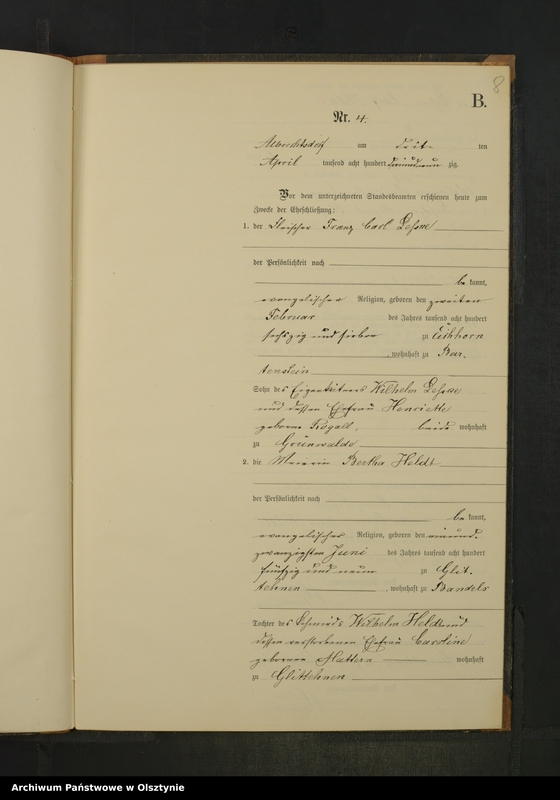 8
B.
Nr. 4.
Albrechtsdorf am ten
April tausend acht hundert zig.
Vor dem unterzeichneten Standesbeamten erschienen heute zum
Zwecke der Eheschließung:
1. der Fleischer Franz Carl
der Persönlichkeit nach
bekannt,
evangelischer Religion, geboren den zweiten
Februar des Jahres tausend acht hundert
sechszig und sieben zu Eichhorn
, wohnhaft zu Bar-
tenstein
Sohn des Eigenkätners Wilhelm
und dessen Ehefrau Henriette
geborne beide wohnhaft
zu Grünwalde
2. die Meierin Bertha Heldt
der Persönlichkeit nach
bekannt,
evangelischer Religion, geboren den einund-
zwanzigsten Juni des Jahres tausend acht hundert
fünfzig und neun zu Glit-
tehnen , wohnhaft zu Bandels
Tochter des Schmieds Wilhelm Heldt und
dessen verstorbenen Ehefrau Caroline
geborenen Mattern wohnhaft
zu Glittehnen
Archiwum Państwowe w Olsztynie